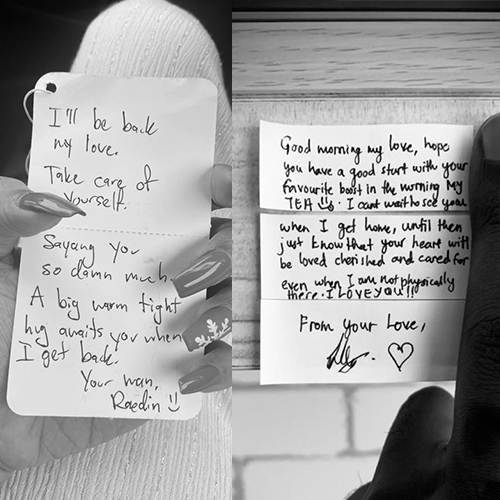 I'll be back
my love.
Take care of
yourself.
Sayang you
so damn much.
A big warm tight
hug awaits you when
I get back.
Your man,
Raedin
Good morning my love, hope
you have a good start with your
favourite boost in the morning My
TEH . I cant wait to see you
when I get home, until then
just know that your heart will
be loved cherished and cared for
even when I am not physically
there. I LOVE YOU!!
From your Love,